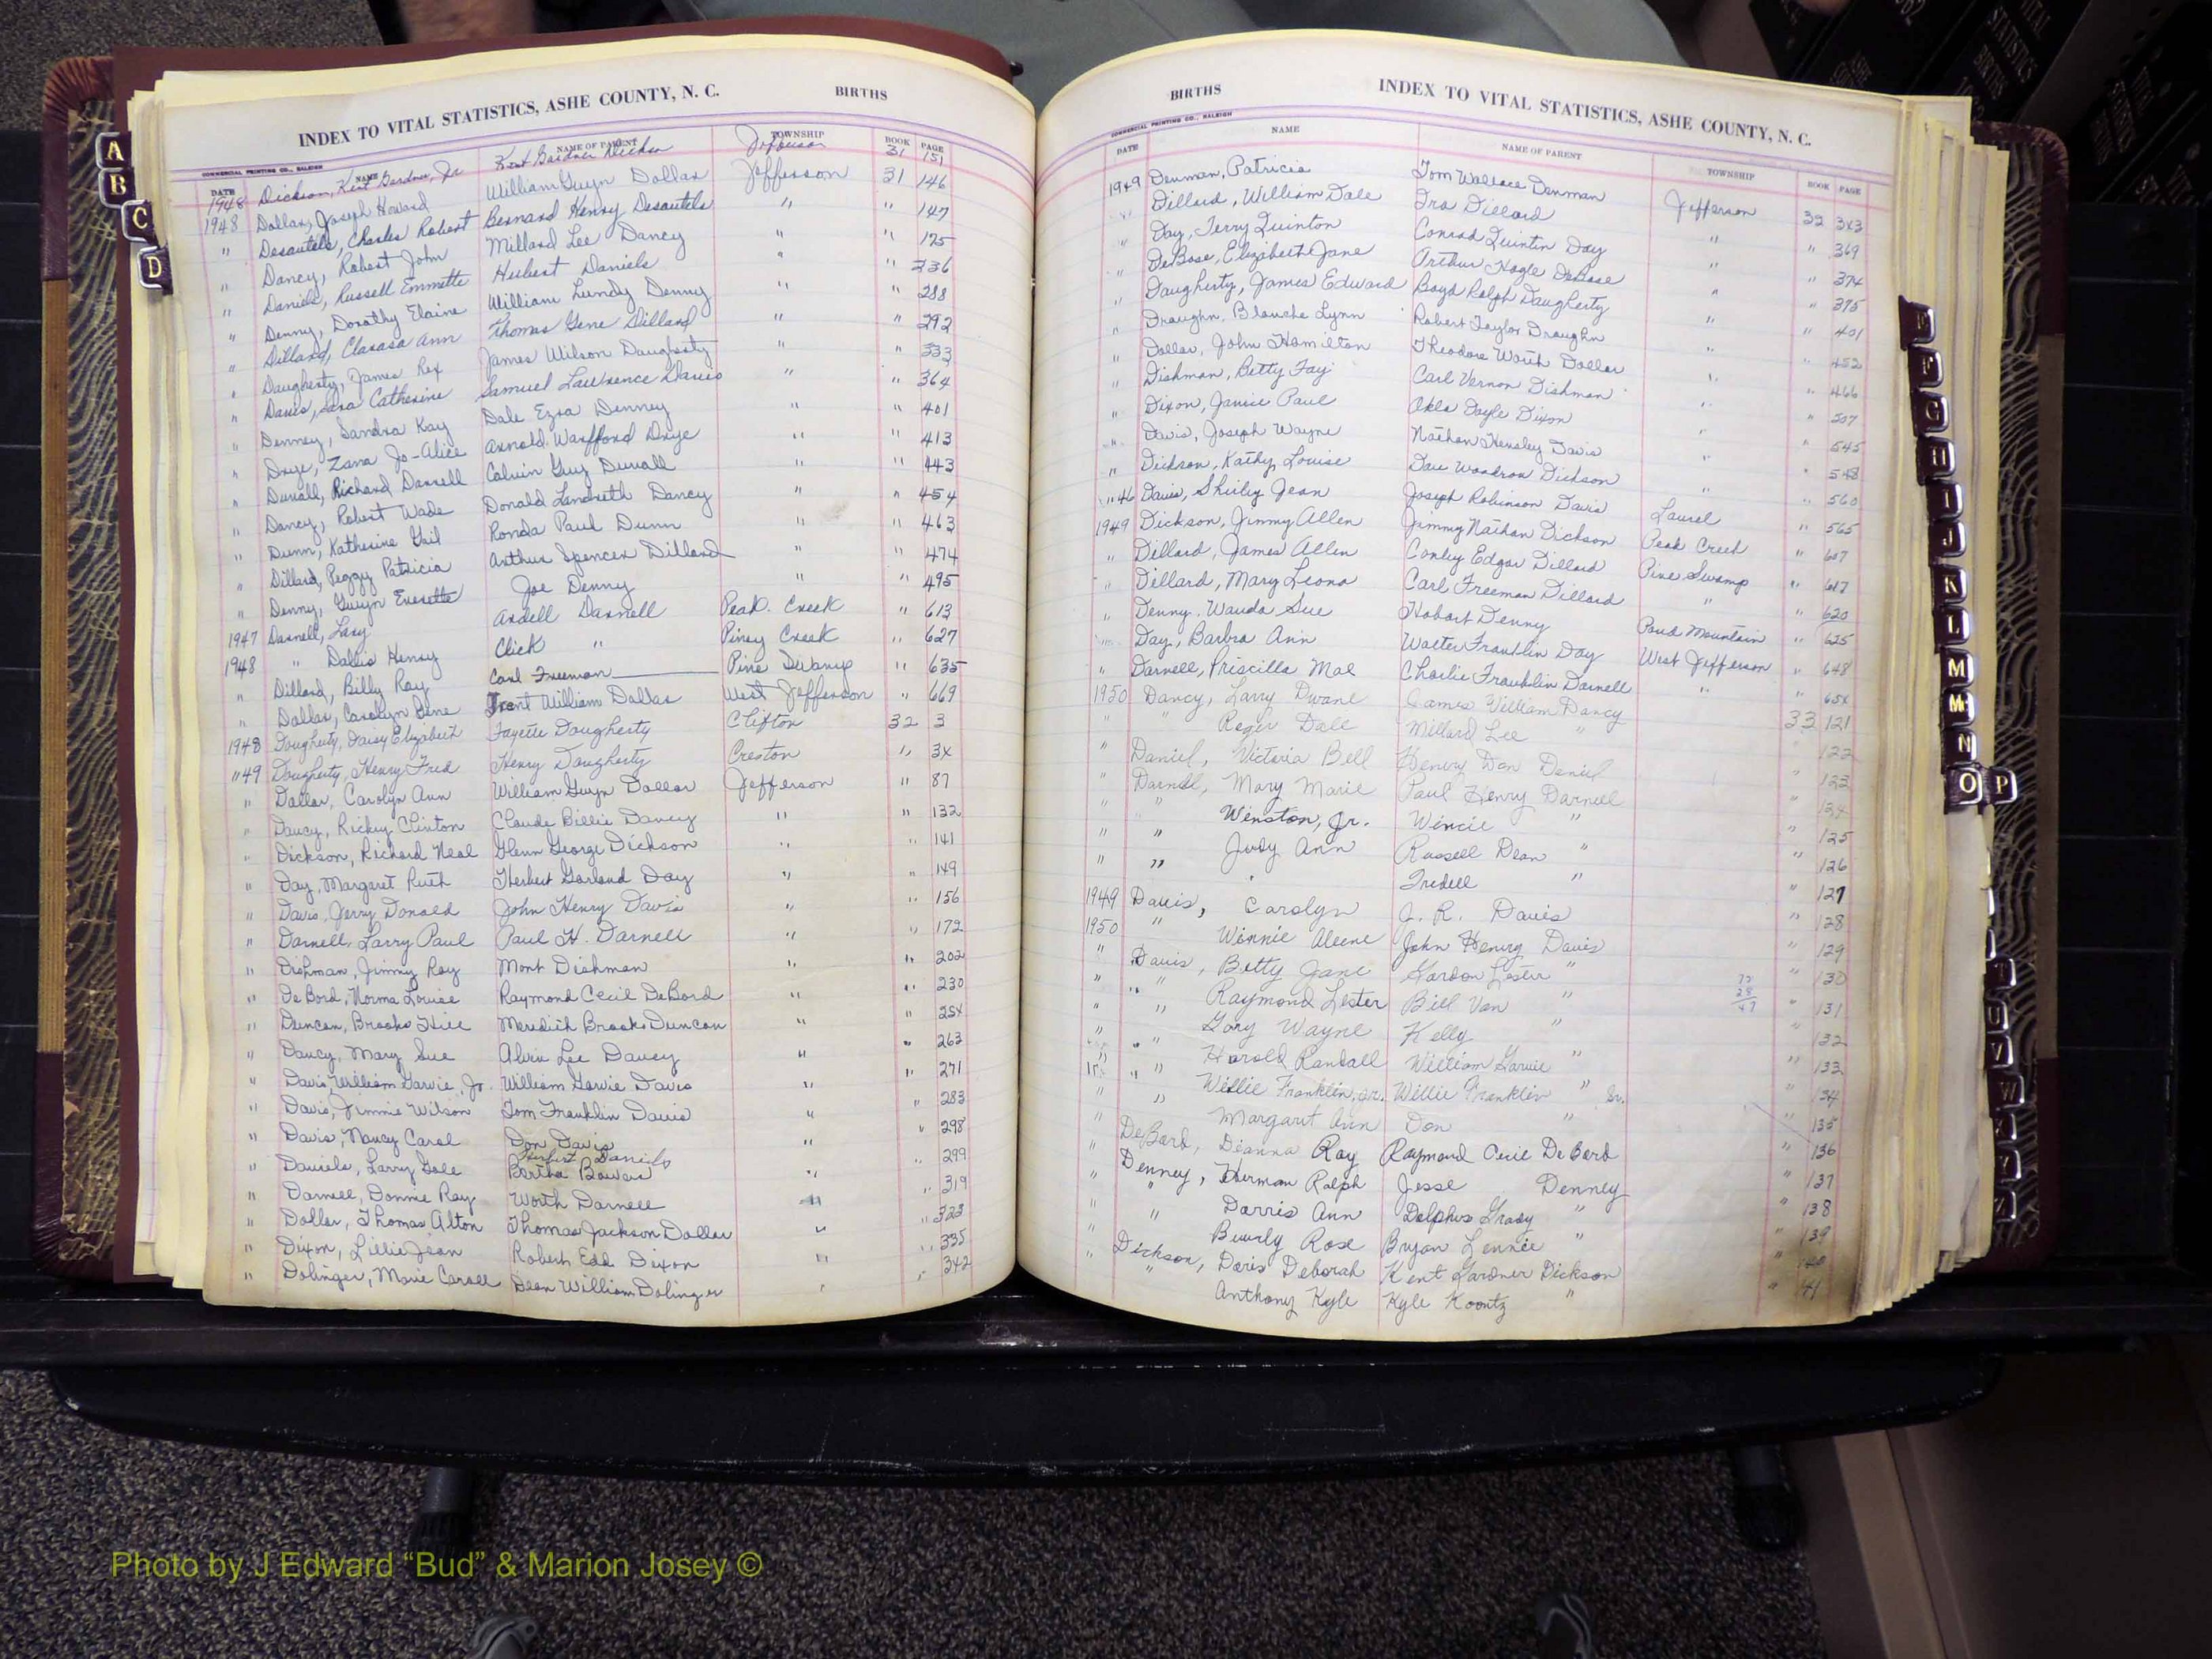 INDEX TO VITAL STATISTICS, ASHE COUNTY, N. C. BIRTHS
COMMERCIAL PRINTING CO., RALEIGH
DATE NAME NAME OF PARENT TOWNSHIP BOOK PAGE
1948 Dickson, Kent Gardner, Jr Kent Gardner Dickson Jefferson 31 151
1948 Dollar, Joseph Howard William Gwyn Dollar Jefferson 31 146
" Desautels, Charles Robert Bernard Henry Desautels " " 147
" Dancy, Robert John Millard Lee Dancy " " 175
" Daniels, Russell Emmette Hubert Daniels " " 236
" Denny, Dorothy Elaine William Lundy Denny " " 288
" Dillard, Ann Thomas Gene Dillard " " 292
" Daugherty, James Rex James Wilson Daugherty " " 333
" Davis, Sara Catherine Samuel Lawrence Davis " " 364
" Denney, Sandra Kay Dale Ezra Denney " " 401
" Drye, Zana Jo-Alice Arnold Warfford Drye " " 413
" Duvall, Richard Darrell Calvin Guy Duvall " " 443
" Dancy, Robert Wade Donald Landreth Dancy " " 454
" Dunn, Katherine Gail Ronda Paul Dunn " " 463
" Dillard, Peggy Patricia Arthur Spencer Dillard " " 474
" Denny, Gwyn Everette Joe Denny " " 495
1947 Darnell, Lary Ardell Darnell Peak Creek " 613
1948 " Dallis Henry Click " Piney Creek " 627
" Dillard, Billy Ray Carl Freeman Pine Swamp " 635
" Dollar, Carolyn Gene William Dollar West Jefferson " 669
1948 Dougherty, Daisy Elizabeth Fayette Dougherty Clifton 32 3
" 49 Dougherty, Henry Fred Henry Dougherty Creston " 3x
" Dollar, Carolyn Ann William Gwyn Dollar Jefferson " 87
" Dancy, Rickey Clinton Claude Billie Dancy " " 132
" Dickson, Richard Neal Glenn George Dickson " " 141
" Day, Margaret Ruth Herbert Garland Day " " 149
" Davis, Jerry Donald John Henry Davis " " 156
" Darnell, Larry Paul Paul H. Darnell " " 172
" Dishman, Jimmy Roy Mont Dishman " " 202
" DeBord, Norma Louise Raymond Cecil DeBord " " 230
" Duncan, Brooks Hill Meredith Brooks Duncan " " 254
" Dancy, Mary Sue Alvin Lee Dancy " " 263
" Davis, William Garvie, Jr. William Garvie Davis " " 271
" Davis, Jimmie Wilson Tom Franklin Davis " " 283
" Davis, Nancy Carol Don Davis " " 298
" Daniels, Larry Gale Herbert Daniels Bertha Bowers " " 299
" Darnell, Donnie Ray Worth Darnell " " 319
" Dollar, Thomas Alton Thomas Jackson Dollar " " 323
" Dixon, Lillie Jean Robert Edd Dixon " " 335
" Dolinger, Marie Caroll Dean William Dolinger " " 342
BIRTHS INDEX TO VITAL STATISTICS, ASHE COUNTY, N. C.
COMMERCIAL PRINTING CO., RALEIGH
DATE NAME NAME OF PARENT TOWNSHIP BOOK PAGE
1949 Denman, Patricia Tom Wallace Denman Jefferson 32 3x3
" Dillard, William Dale Ira Dillard " " 369
" Day, Terry Quinton Conrad Quintin Day " " 374
" DeBose, Elizabeth Jane Arthur Hogle DeBose " " 375
" Daugherty, James Edward Boyd Ralph Daugherty " " 401
" Draughn, Blanche Lynn Robert Taylor Draughn " " 452
" Dollar, John Hamilton Theodore Worth Dollar " " 466
" Dishman, Betty Fay Carl Vernon Dishman " " 507
" Dixon, Janice Paul Okla Doyle Dixon " " 545
" Davis, Joseph Wayne Nathan Hensley Davis " " 548
" Dickson, Kathy Louise Dave Woodrow Dickson " " 560
" 46 Davis, Shirley Jean Joseph Robinson Davis Laurel " 565
1949 Dickson, Jimmy Allen Jimmy Nathan Dickson Peak Creek " 607
" Dillard, James Allen Conley Edgar Dillard Pine Swamp " 617
" Dillard, Mary Leona Carl Freeman Dillard " " 620
" Denny, Wanda Sue Hobart Denny Pond Mountain " 625
" Day, Barbra Ann Walter Franklin Day West Jefferson " 648
" Darnell, Priscilla Mae Charlie Franklin Darnell " " 65x
1950 Dancy, Larry Dwane James William Dancy 33 121
" " Roger Dale Millard Lee " " 122
" Daniel, Victoria Bell Henry Don Daniel " 123
" Darnell, Mary Marie Paul Henry Darnell " 124
" " Winston, Jr. Wincie " " 125
" " Judy Ann Russell Dean " " 126
" " Tredell " " 127
1949 Davis, Carolyn J. R. Davis " 128
1950 " Winnie Aleene John Henry Davis " 129
" Davis, Betty Jane Gordon Lester " " 130
" " Raymond Lester Bill Van " " 131
" " Gary Wayne Kelly " " 132
" " Harold Randall William Garvie " " 133
" " Willie Franklin, Jr. Willie Franklin " Sr. " 134
" " Margaret Ann Don " " 135
" DeBord, Deanna Ray Raymond Cecil DeBord " 136
" Denney, Herman Ralph Jesse Denney " 137
" " Dorris Ann Dolphus Grady " " 138
" " Beverly Rose Bryan Lennie " " 139
" Dickson, Doris Deborah Kent Gardner Dickson " 140
" " Anthony Kyle Kyle Koontz " " 41
A
B
C
D
F
G
H
I
J
K
L
M
Mc
N
O P
Photo by J Edward “Bud” & Marion Josey ©